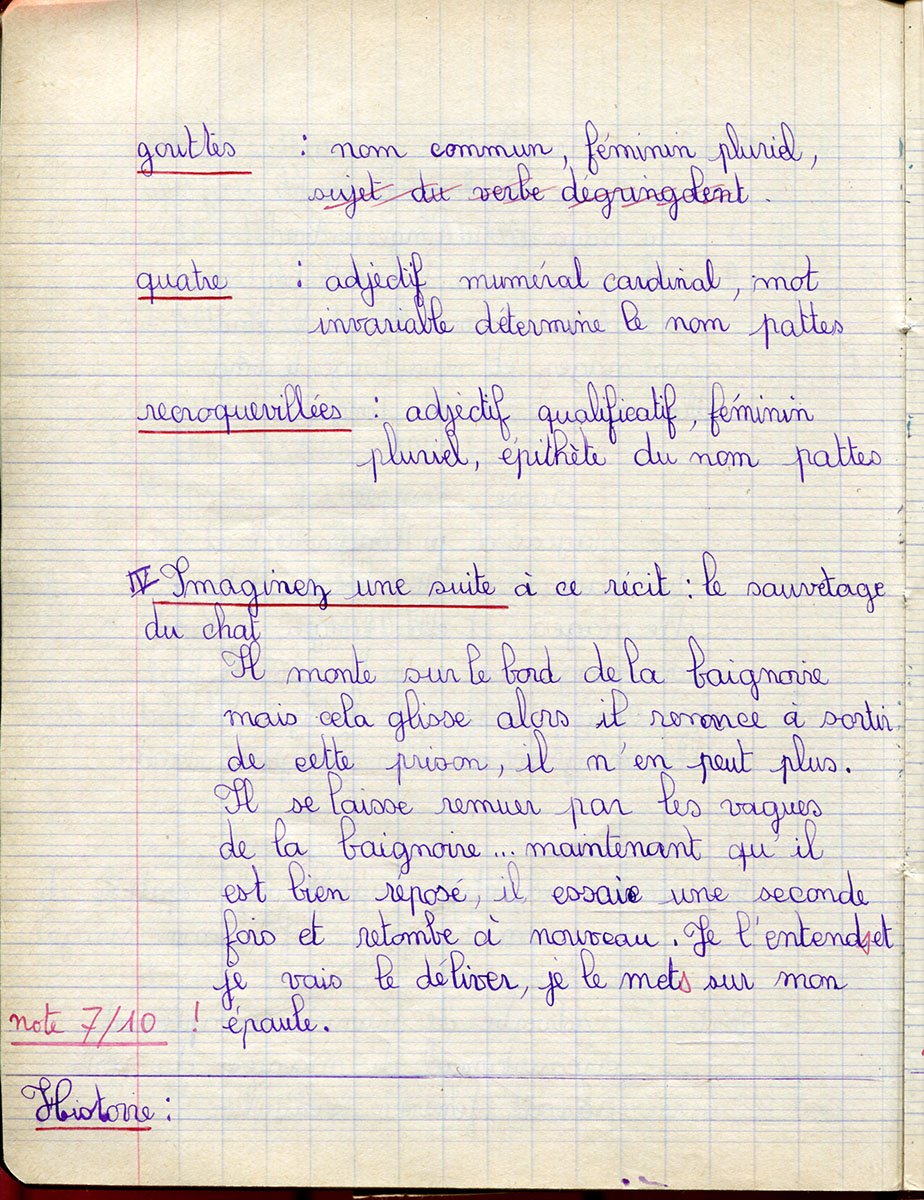 gouttes : nom commun, féminin pluriel,
sujet du verbe dégringolent.
quatre : adjectif numéral cardinal, mot
invariable détermine le nom pattes
recroquevillées : adjectif qualificatif, féminin
pluriel, épithète du nom pattes
IV Imaginez une suite à ce récit : le sauvetage
du chat
Il monte sur le bord de la baignoire
mais cela glisse alors il renonce à sortir
de cette prison, il n'en peut plus.
Il se laisse remuer par les vagues
de la baignoire... maintenant qu'il
est bien réposé, il essaie une seconde
fois et retombe à nouveau. Je l'entends et
je vais le déliver, je le mets sur mon
note 7/10 ! épaule.
Histoire :